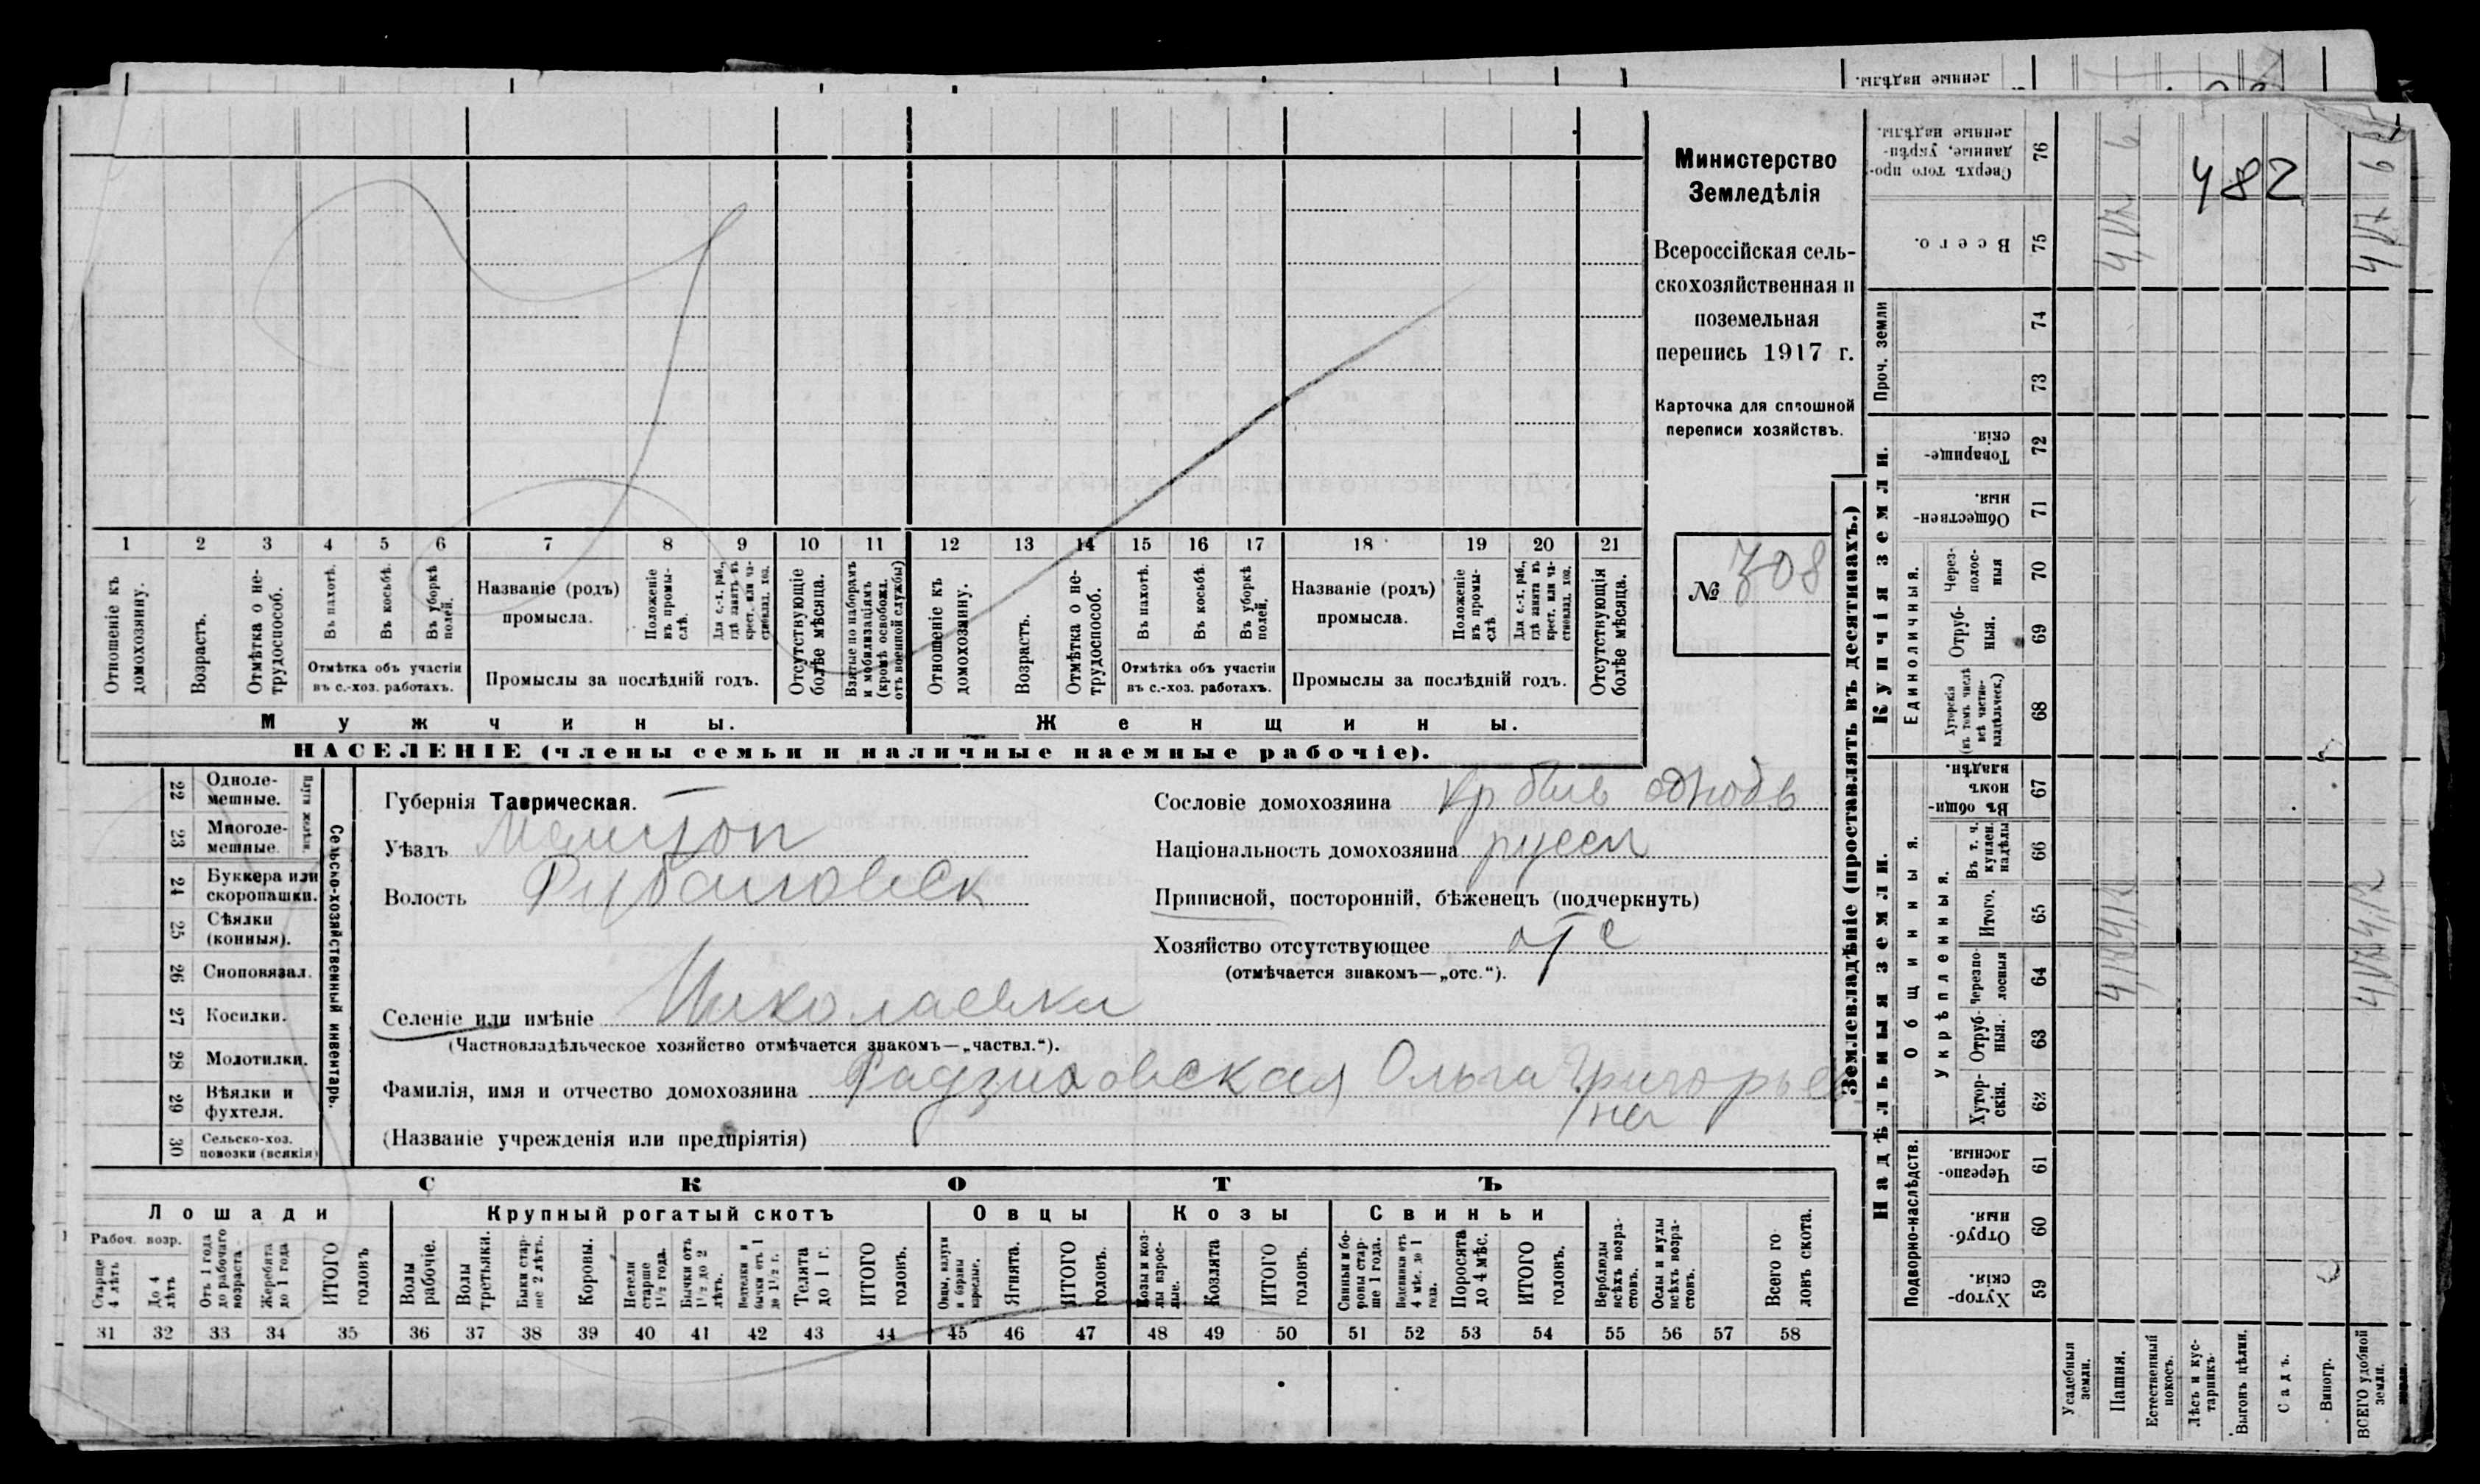 ленные надѣлы.
Министерство
Земледѣлія
Всероссійская сель-
скохозяйственная и
поземельная
перепись 1917 г.
Карточка для сплошной
переписи хозяйствъ.
№ 708
482
1 2 3 4 5 6 7 8 9 10 11 12 13 14 15 16 17 18 19 20 21
Отношеніе къ домохозяину.
Возрастъ.
Отмѣтка о не-трудоспособ.
Въ пахотѣ.
Въ косьбѣ.
Въ уборкѣ полей.
Отмѣтка объ участіи
въ с.-хоз. работахъ.
Названіе (родъ)
промысла.
Положеніе въ промы-слѣ.
Для с.-х. раб., гдѣ занятъ въ крест. или ча-стновлад. хоз.
Промыслы за послѣдній годъ.
Отсутствующіе болѣе мѣсяца.
Взятые по наборамъ и мобилизаціямъ (кромѣ освобожд. отъ военной службы)
Отношеніе къ домохозяину.
Возрастъ.
Отмѣтка о не-трудоспособ.
Въ пахотѣ.
Въ косьбѣ.
Въ уборкѣ полей.
Отмѣтка объ участіи
въ с.-хоз. работахъ.
Названіе (родъ)
промысла.
Положеніе въ промы-слѣ.
Для с.-х. раб., гдѣ занята въ крест. или ча-стновлад. хоз.
Промыслы за послѣдній годъ.
Отсутствующія болѣе мѣсяца.
Мужчины.
Женщины.
НАСЕЛЕНІЕ (члены семьи и наличные наемные рабочіе).
22 Одноле-мешные.
23 Многоле-мешные.
Плуги желѣзн.
24 Буккера или скоропашки.
25 Сѣялки (конныя).
26 Сноповязал.
27 Косилки.
28 Молотилки.
29 Вѣялки и фухтеля.
30 Сельско-хоз. повозки (всякія)
Сельско-хозяйственный инвентарь.
Губернія Таврическая.
Уѣздъ Мелитоп
Волость Рубановск
Сословіе домохозяина кр
Національность домохозяина русск
Приписной, посторонній, бѣженецъ (подчеркнуть)
Хозяйство отсутствующее отс
(отмѣчается знакомъ—„отс.“).
Селеніе или имѣніе Николаевка
(Частновладѣльческое хозяйство отмѣчается знакомъ—„частвл.“).
Фамилія, имя и отчество домохозяина Радзиховская Ольга Григорьев
на
(Названіе учрежденія или предпріятія)
СКОТЪ
Лошади
Крупный рогатый скотъ
Овцы
Козы
Свиньи
Рабоч. возр.
Старше 4 лѣтъ
До 4 лѣтъ
Отъ 1 года до рабочаго возраста
Жеребята до 1 года
ИТОГО головъ
Волы рабочіе.
Волы третьяки.
Быки стар-ше 2 лѣтъ.
Коровы.
Нетели старше 1½ года.
Бычки отъ 1½ до 2 лѣтъ.
Нетелки и бычки отъ 1 до 1½ г.
Телята до 1 г.
ИТОГО головъ.
Овцы, валухи и бараны взрослые.
Ягнята.
ИТОГО головъ.
Козы и коз-лы взрос-лые.
Козлята
ИТОГО головъ.
Свиньи и бо-ровы стар-ше 1 года.
Подсвинки отъ 4 мѣс. до 1 года.
Поросята до 4 мѣс.
ИТОГО головъ.
Верблюды всѣхъ возра-стовъ.
Ослы и мулы всѣхъ возра-стовъ.
Всего го-ловъ скота.
31 32 33 34 35 36 37 38 39 40 41 42 43 44 45 46 47 48 49 50 51 52 53 54 55 56 57 58
Землевладѣніе (проставлять въ десятинахъ.)
Сверхъ того про-данные, укрѣп-ленные надѣлы. 76
Всего. 75
Проч. земли
74
73
Купчія земли.
Товарище-скія. 72
Обществен-ныя. 71
Единоличныя.
Через-полос-ныя 70
Отруб-ныя. 69
Хуторскія (въ томъ числѣ всѣ частно-владѣльческ.) 68
Надѣльныя земли.
Общинныя.
Въ общин-номъ владѣн. 67
Укрѣпленныя.
Въ т. ч. куплен. надѣлы 66
Итого. 65
Черезпо-лосныя 64
Отруб-ныя. 63
Хутор-скія. 62
Подворно-наслѣдств.
Черезпо-лосныя. 61
Отруб-ныя. 60
Хутор-скія. 59
Усадебныя земли.
Пашня.
Естественный покосъ.
Лѣсъ и кус-тарникъ
Выгонъ цѣлин.
Садъ.
Виногр.
ВСЕГО удобной земли.